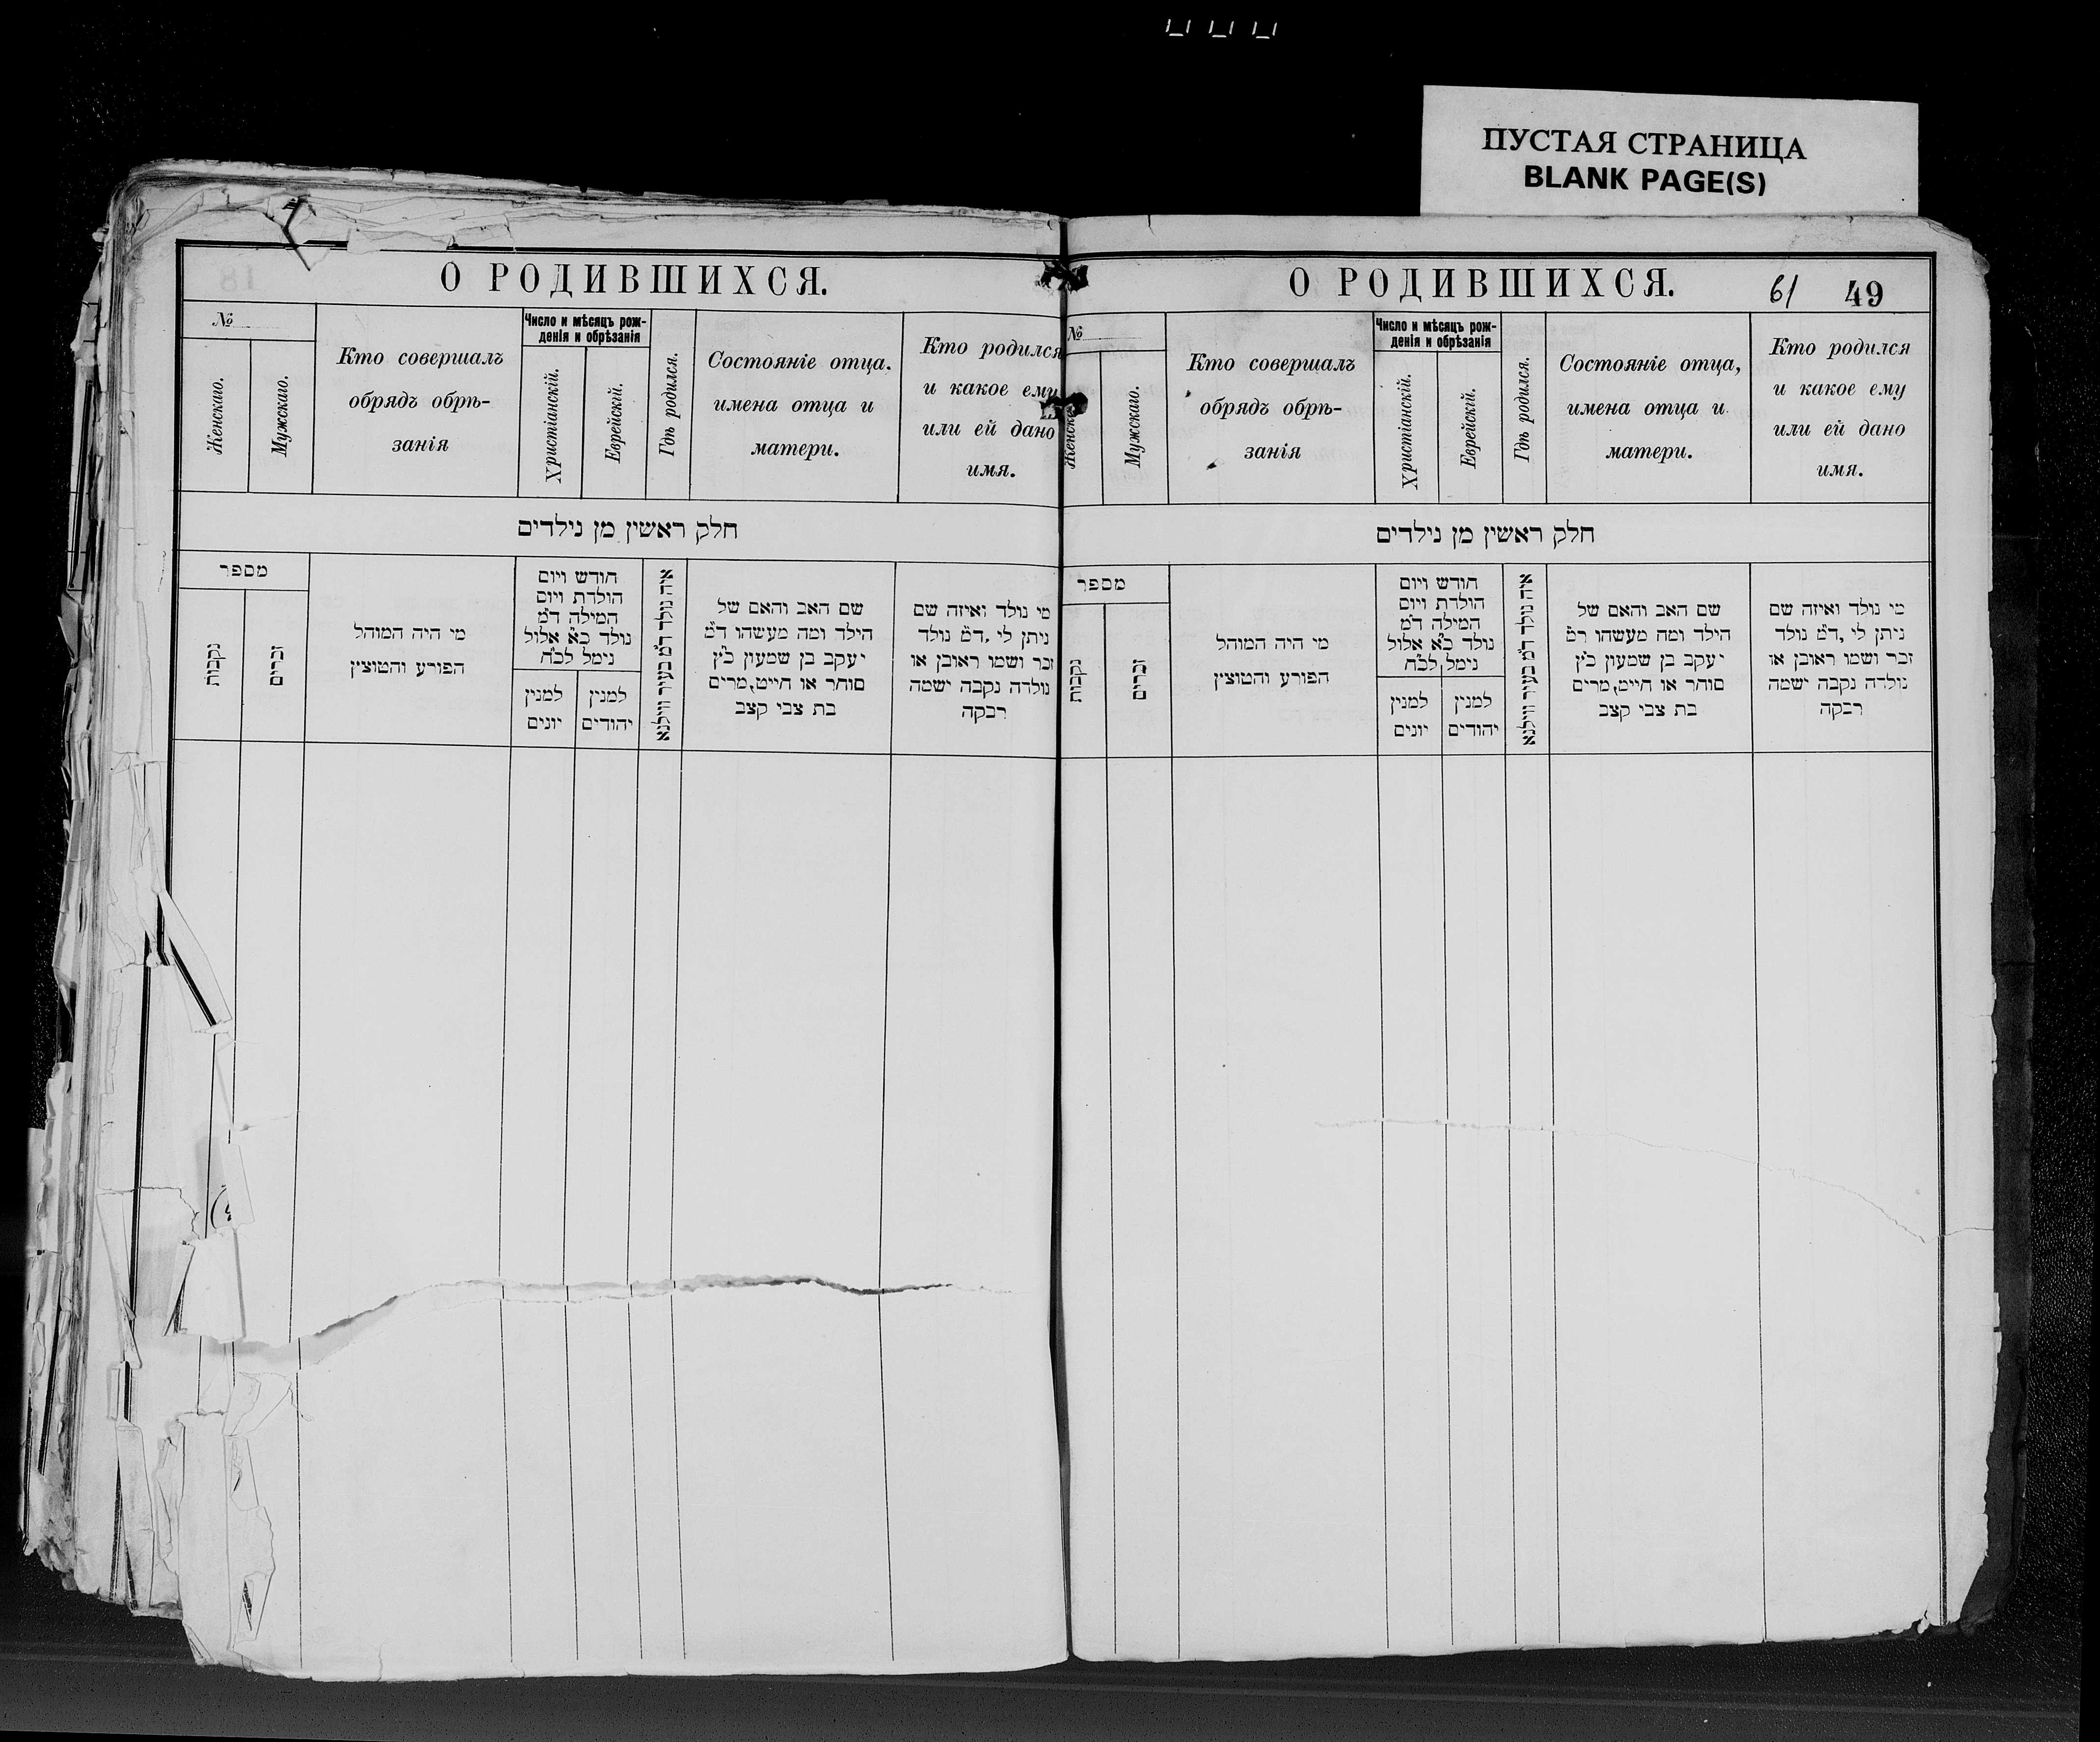 ПУСТАЯ СТРАНИЦА
BLANK PAGE(S)
О РОДИВШИХСЯ.
№
Женскаго.
Мужскаго.
Кто совершалъ
обрядъ обрѣ-
занія
Число и мѣсяцъ рож-
денія и обрѣзанія
Христіанскій.
Еврейскій.
Гдѣ родился.
Состояніе отца.
имена отца и
матери.
Кто родился
и какое ему
или ей дано
имя.
חלק ראשין מן נילדים
מספר
נקבות
זכרים
מי היה המוהל
הפורע והמוצץ
חודש ויום
הולדת ויום
המילה ד״מ
נולד כ״א אלול
נימל לכ״ח
למנין
יונים
למנין
יהודים
איה נולד ד״מ בעיר ווילנא
שם האב והאם של
הילד ומה מעשהו ד״מ
יעקב בן שמעון כ״ץ
סוחר או חייט, מרים
בת צבי קצב
מי נולד ואיזה שם
ניתן לי, ד״מ נולד
זכר ושמו ראובן או
נולדה נקבה ישמה
רבקה
О РОДИВШИХСЯ.
61 49
№
Женск
Мужскаго.
Кто совершалъ
обрядъ обрѣ-
занія
Число и мѣсяцъ рож-
денія и обрѣзанія
Христіанскій.
Еврейскій.
Гдѣ родился.
Состояніе отца,
имена отца и
матери.
Кто родился
и какое ему
или ей дано
имя.
חלק ראשין מן נילדים
מספר
נקבות
זכרים
מי היה המוהל
הפורע והמוצץ
חודש ויום
הולדת ויום
המילה ד״מ
נולד כ״א אלול
נימל לכ״ח
למנין
יונים
למנין
יהודים
איה נולד ד״מ בעיר ווילנא
שם האב והאם של
הילד ומה מעשהו ד״מ
יעקב בן שמעון כ״ץ
סוחר או חייט, מרים
בת צבי קצב
מי נולד ואיזה שם
ניתן לי, ד״מ נולד
זכר ושמו ראובן או
נולדה נקבה ישמה
רבקה